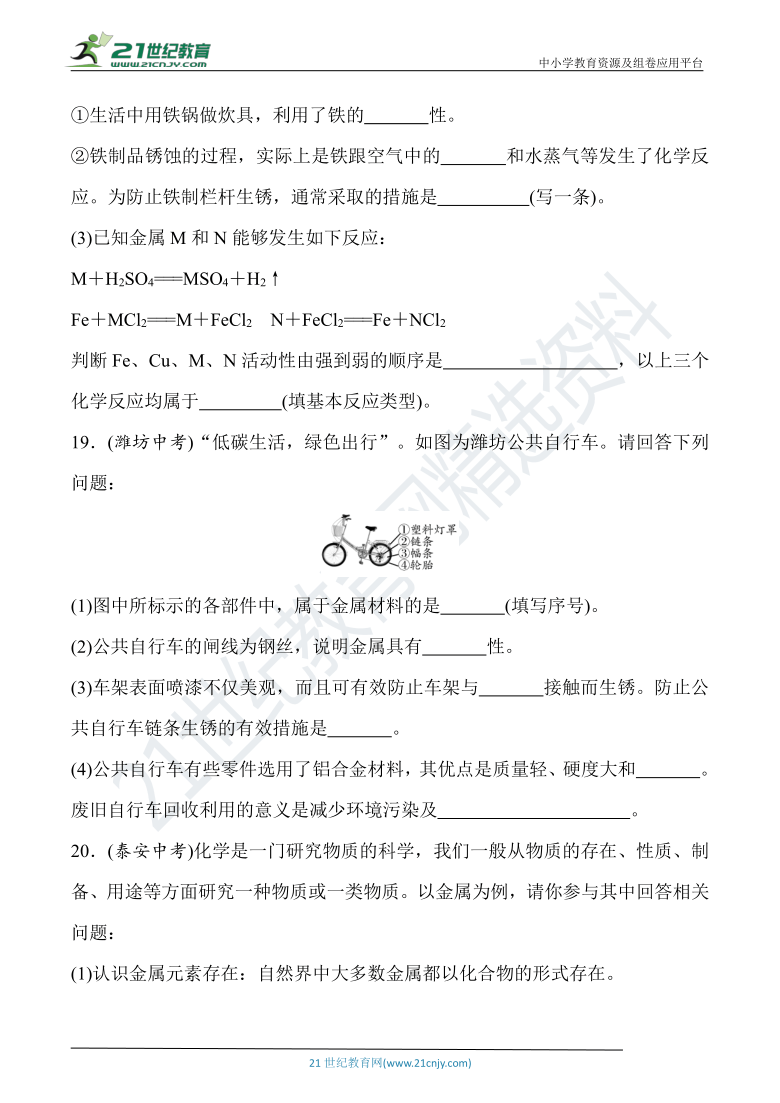 21世纪教育
WWW.21CNJY.COM
中小学教育资源及组卷应用平台
①生活中用铁锅做炊具，利用了铁的_______性。
②铁制品锈蚀的过程，实际上是铁跟空气中的_______和水蒸气等发生了化学反
应。为防止铁制栏杆生锈，通常采取的措施是__________(写一条)。
(3)已知金属 M 和 N 能够发生如下反应：
M＋H₂SO₄===MSO₄＋H₂↑
Fe＋MCl₂===M＋FeCl₂ N＋FeCl₂===Fe＋NCl₂
判断 Fe、Cu、M、N 活动性由强到弱的顺序是___________________，以上三个
化学反应均属于_________(填基本反应类型)。
19．(潍坊中考)“低碳生活，绿色出行”。如图为潍坊公共自行车。请回答下列
问题：
①塑料灯罩
②链条
③幅条
④轮胎
(1)图中所标示的各部件中，属于金属材料的是_______(填写序号)。
(2)公共自行车的闸线为钢丝，说明金属具有_______性。
(3)车架表面喷漆不仅美观，而且可有效防止车架与_______接触而生锈。防止公
共自行车链条生锈的有效措施是_______。
(4)公共自行车有些零件选用了铝合金材料，其优点是质量轻、硬度大和_______。
废旧自行车回收利用的意义是减少环境污染及_____________________。
20．(泰安中考)化学是一门研究物质的科学，我们一般从物质的存在、性质、制
备、用途等方面研究一种物质或一类物质。以金属为例，请你参与其中回答相关
问题：
(1)认识金属元素存在：自然界中大多数金属都以化合物的形式存在。
21世纪教育网精选资料
21 世纪教育网(www.21cnjy.com)